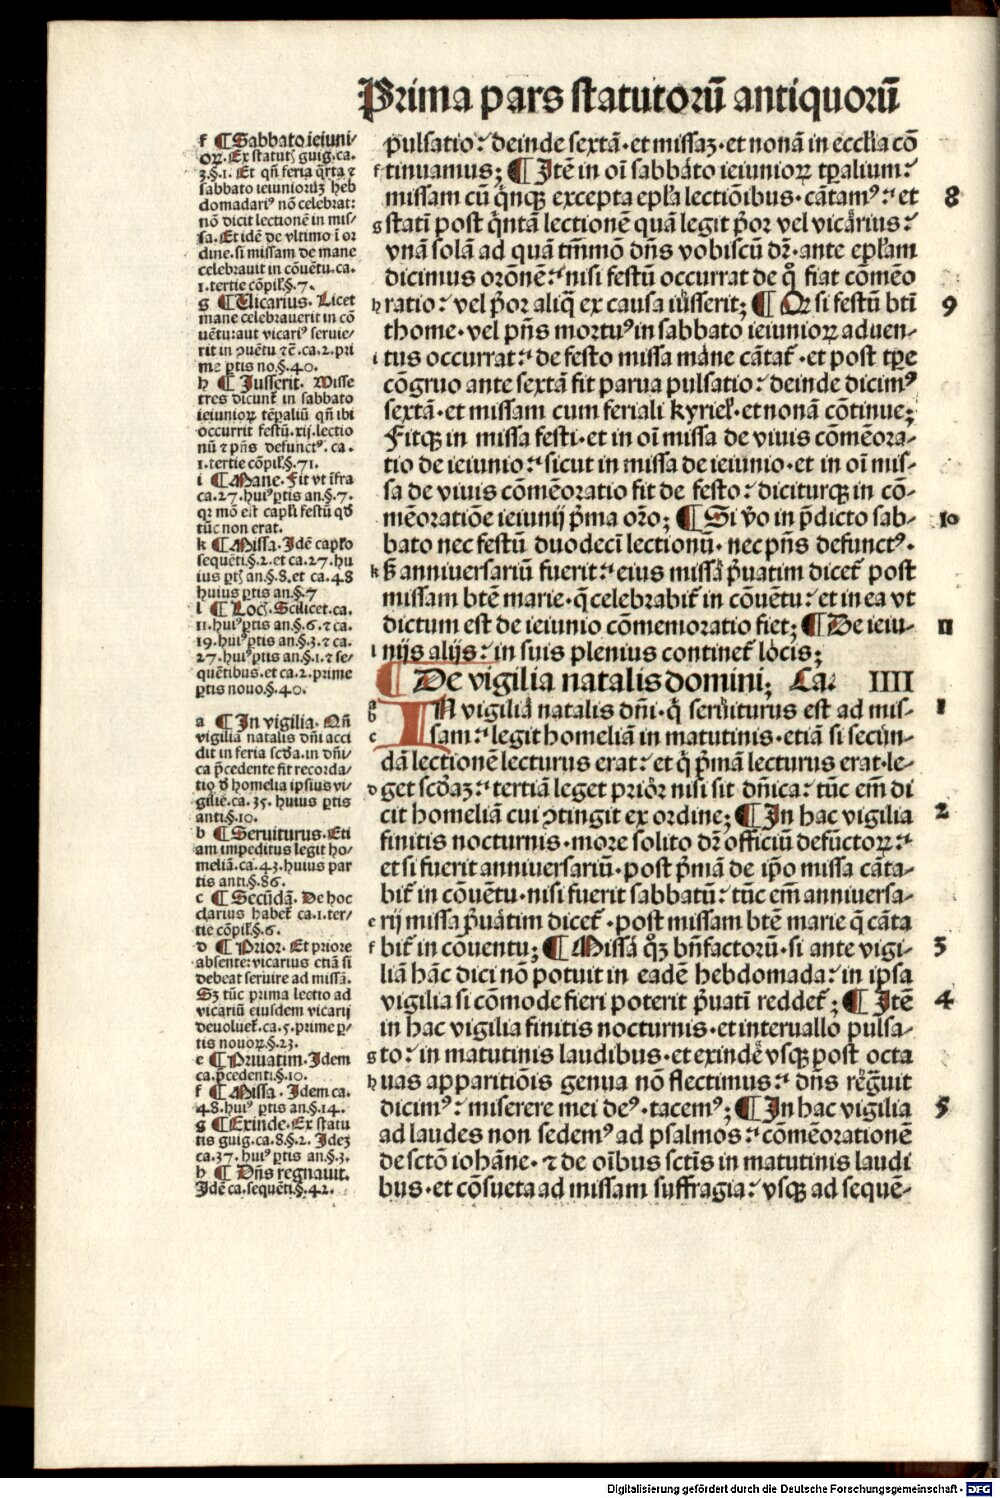 Prima pars statutorū antiquorū
f ¶ Sabbato ieiuni⸗
oꝝ. Ex statut̄ guig. ca.
3.§.1. Et qn̄ feria q̄rta ⁊
sabbato ieiunioꝝ heb
domadariꝰ nō celebrat:
nō dicit lectionē in mis⸗
sa. Et idē de vltimo ī or
dine. si missam de mane
celebrauit in cōuētu. ca.
1. tertie cōpil̄.§.7.
g ¶ Vicarius. Licet
mane celebrauerit in cō
uētu: aut vicariꝰ seruie⸗
rit in ꝯuētu ⁊c̄. ca.2. pri
me ꝑtis no.§.40.
h ¶ Iusserit. Misse
tres dicunt̄ in sabbato
ieiunioꝝ tēpaliū qn̄ ibi
occurrit festū .xij. lectio
nū ⁊ pn̄s defunctꝰ. ca.
1. tertie cōpil̄.§.71.
i ¶ Mane. Fit vt īfra
ca.27. huiꝰ ꝑtis an.§.7.
qꝛ mō est capl̄i festū qd̄
tūc non erat.
k ¶ Missa. Idē cap̄lo
sequēti.§.2. et ca.27. hu
ius ꝑtis an.§.8. et ca.48
huius ꝑtis an.§.7
l ¶ Loc̄. Scilicet. ca.
11. huiꝰ ꝑtis an.§.6. ⁊ ca.
19. huiꝰ ꝑtis an.§.3. ⁊ ca.
27. huiꝰ ꝑtis an.§.1. ⁊ se⸗
quētibus. et ca.2. prime
ꝑtis nouo.§.40.
a ¶ In vigilia. Qn̄
vigilia natalis dn̄i acci
dit in feria scd̄a. in dn̄i⸗
ca p̄cedente fit recorda⸗
tio d̄ homelia ipsius vi⸗
gilie. ca.35. huius ꝑtis
anti.§.10.
b ¶ Seruiturus. Eti
am impeditus legit ho⸗
meliā. ca.43. huius par
tis anti.§.86.
c ¶ Secūdā. De hoc
clarius habet̄ ca.1. ter⸗
tie cōpil̄.§.6.
d ¶ Prior. Et priore
absente: vicarius etiā si
debeat seruire ad missā.
Sꝫ tūc prima lectio ad
vicariū eiusdem vicarij
deuoluet̄. ca.5. prime ꝑ⸗
tis nouoꝝ.§.23.
e ¶ Priuatim. Idem
ca. p̄cedenti.§.10.
f ¶ Missa. Idem ca.
48. huiꝰ ꝑtis an.§.14.
g ¶ Exinde. Ex statu
tis guig. ca.8.§.2. Ideꝫ
ca.37. huiꝰ ꝑtis an.§.3.
h ¶ Dn̄s regnauit.
Idē ca. sequēti.§.42.
pulsatio: deinde sextā· et missaꝫ· et nonā in eccl̄ia cō
f tinuamus; ¶ Itē in oī sabbato ieiunioꝝ tp̄alium:
missam cū q̄nqꝫ excepta epl̄a lectiōibus· cātamꝰ: et 8
g statī post q̄ntā lectionē quā legit p̄or vel vicarius:
vnā solā ad quā tm̄mō dn̄s vobiscū dr̄· ante epl̄am
dicimus orōnē: nisi festū occurrat de q̊ fiat cōmēo
h ratio: vel p̄or aliq̄ ex causa iusserit; ¶ Qꝛ si festū btī 9
thome· vel pn̄s mortuꝰ in sabbato ieiunioꝝ aduen⸗
i tus occurrat: de festo missa mane cātat̄· et post tp̄e
cōgruo ante sextā fit parua pulsatio: deinde dicimꝰ
sextā· et missam cum feriali kyriel̄· et nonā cōtinue;
Fitqꝫ in missa festi· et in oī missa de viuis cōmēora⸗
tio de ieiunio: sicut in missa de ieiunio· et in oī mis⸗
sa de viuis cōmēoratio fit de festo: diciturqꝫ in cō⸗
mēoratiōe ieiunij p̄ma orō; ¶ Si v̄o in p̄dicto sab⸗ 10
bato nec festū duodecī lectionū· nec pn̄s defunctꝰ·
k sꝫ anniuersariū fuerit: eius missa p̄uatim dicet̄ post
missam btē marie· q̄ celebrabit̄ in cōuētu: et in ea vt
dictum est de ieiunio cōmemoratio fiet; ¶ De ieiu⸗ 11
l nijs alijs: in suis plenius continet̄ locis;
¶ De vigilia natalis domini; Ca: IIII
a IN vigilia natalis dn̄i· q̄ seruiturus est ad mis⸗ 1
b c sam: legit homeliā in matutinis· etiā si secun⸗
dā lectionē lecturus erat: et q̄ p̄mā lecturus erat· le⸗
d get scd̄aꝫ: tertiā leget prior nisi sit dn̄ica: tūc em̄ di
cit homeliā cui ꝯtingit ex ordine; ¶ In hac vigilia 2
finitis nocturnis· more solito dr̄ officiū defūctoꝝ:
et si fuerit anniuersariū· post p̄mā de ip̄o missa cāta⸗
bit̄ in cōuētu· nisi fuerit sabbatū: tūc em̄ anniuersa⸗
e rij missa p̄uatim dicet̄· post missam btē marie q̄ cāta
f bit̄ in conuentu; ¶ Missa q̊ꝫ bn̄factorū· si ante vigi⸗ 3
liā hāc dici nō potuit in eadē hebdomada: in ipsa
vigilia si cōmode fieri poterit p̄uatī reddet̄; ¶ Itē 4
in hac vigilia finitis nocturnis· et interuallo pulsa⸗
g to: in matutinis laudibus· et exinde vsqꝫ post octa
h uas apparitiōis genua nō flectimus: dn̄s regnuit
dicimꝰ: miserere mei deꝰ· tacemꝰ; ¶ In hac vigilia 5
ad laudes non sedemꝰ ad psalmos: cōmēorationē
de sctō iohāne· ⁊ de oībus sctīs in matutinis laudi
bus· et cōsueta ad missam suffragia: vsqꝫ ad sequē⸗
Digitalisierung gefördert durch die Deutsche Forschungsgemeinschaft - DFG